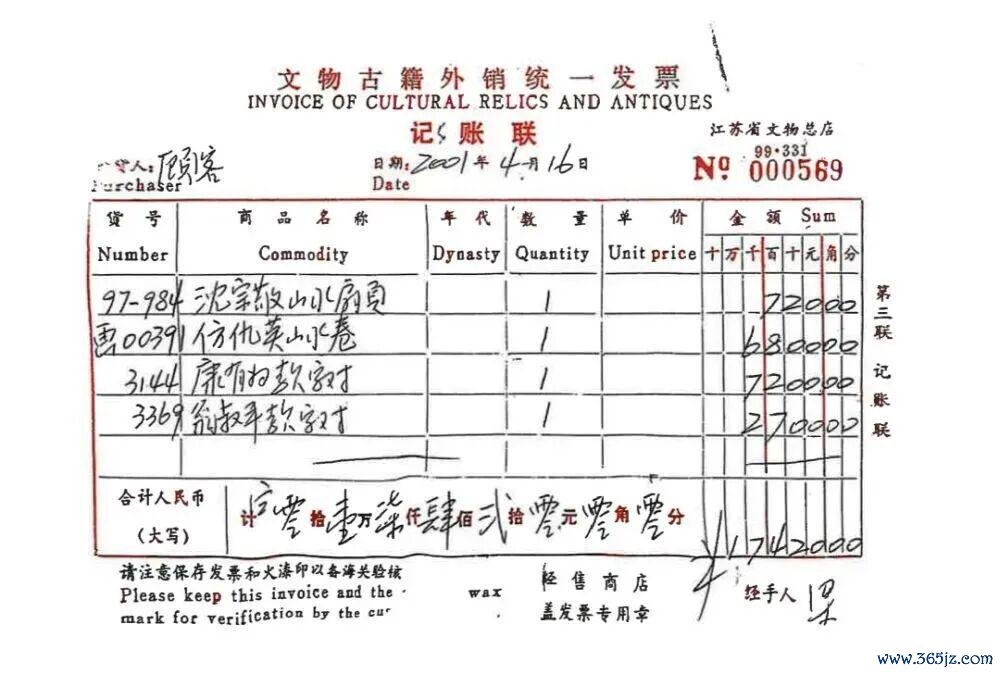 文物古籍外销统一发票
INVOICE OF CULTURAL RELICS AND ANTIQUES
记账联
江苏省文物总店
99·331
人: 顾客
Purchaser
日期: 2001年4月16日
Date
Nº 000569
货号 商品名称 年代 数量 单价 金额 Sum
Number Commodity Dynasty Quantity Unit price 十万千百十元角分
97-984 沈宗敬山水扇页 1 72000
画00391 仿仇英山水卷 1 680000
3144 康有为款字对 1 720000
3369 翁叔平款字对 1 270000
合计人民币
(大写)
计 零拾壹万柒仟肆佰贰拾零元零角零分 ¥1742000
请注意保存发票和火漆印以备海关验核
Please keep this invoice and the wax
mark for verification by the cus
经售商店
盖发票专用章
经手人
第三联 记账联
www.365jz.com